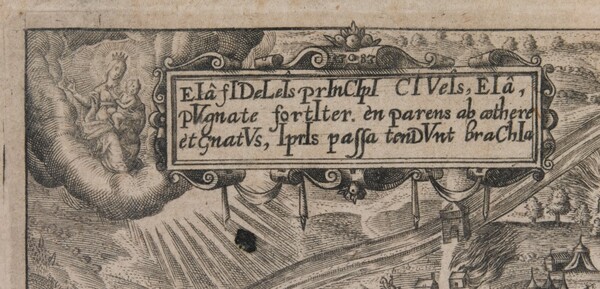 EIâ fIDeLeIs prInCIpI CIVeIs, EIâ,
pVgnate fortIter. èn parens ab æthere
et GnatVs, IprIs passa tenDVnt braChIa